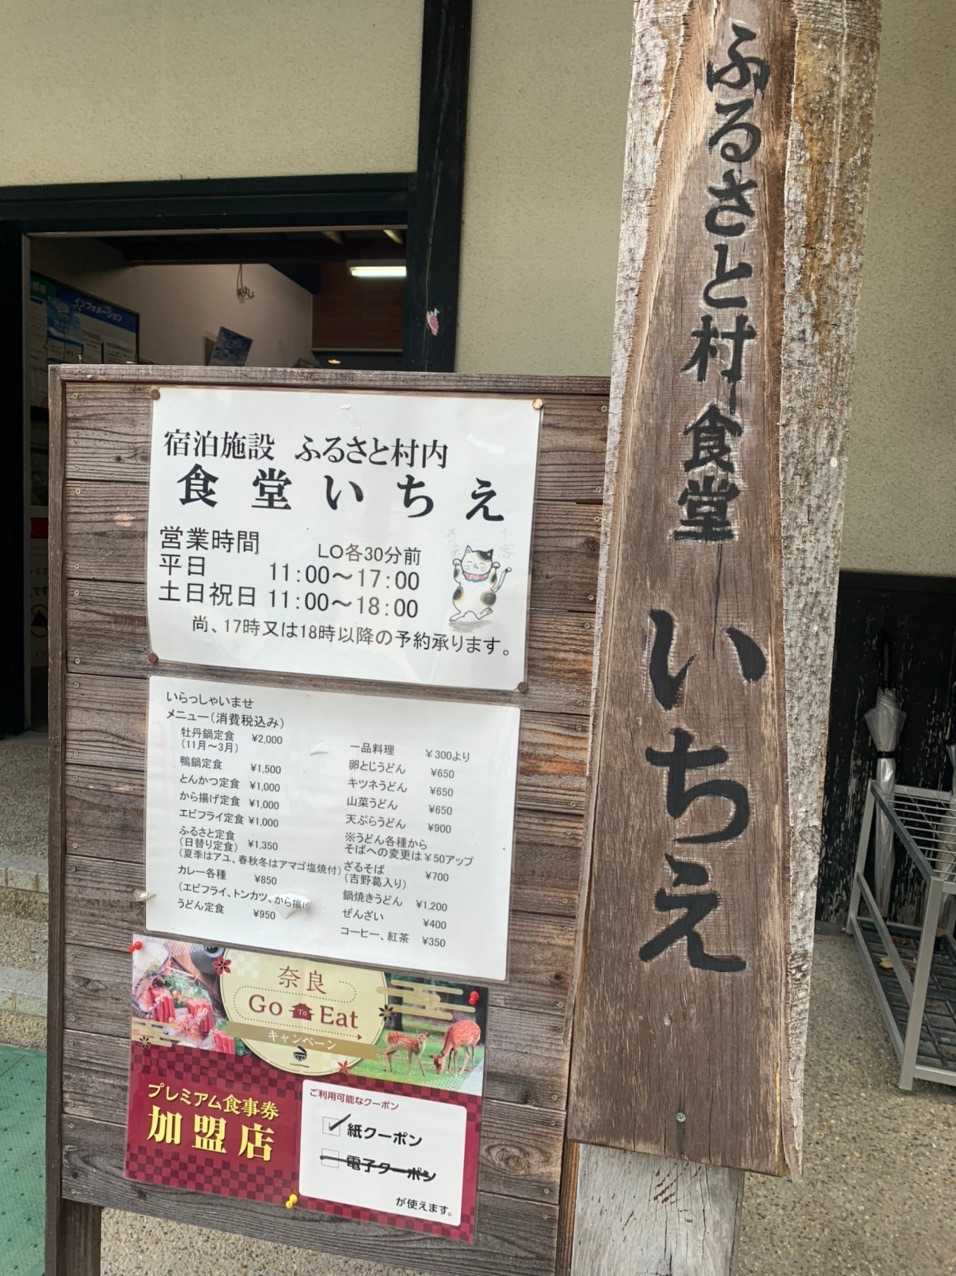 ふるさと村食堂 いちえ
インフォメーション
宿泊施設 ふるさと村内
食堂いちえ
営業時間 LO各30分前
平日 11:00～17:00
土日祝日 11:00～18:00
尚、17時又は18時以降の予約承ります。
いらっしゃいませ
メニュー(消費税込み)
牡丹鍋定食 ¥2,000
(11月～3月)
鴨鍋定食 ¥1,500
とんかつ定食 ¥1,000
から揚げ定食 ¥1,000
エビフライ定食 ¥1,000
ふるさと定食
(日替り定食) ¥1,350
(夏季はアユ、春秋冬はアマゴ塩焼付)
カレー各種 ¥850
(エビフライ、トンカツ、から揚げ
うどん定食 ¥950
一品料理 ¥300より
卵とじうどん ¥650
キツネうどん ¥650
山菜うどん ¥650
天ぷらうどん ¥900
※うどん各種から
そばへの変更は¥50アップ
ざるそば ¥700
(吉野葛入り)
鍋焼きうどん ¥1.200
ぜんざい ¥400
コーヒー、紅茶 ¥350
奈良
Go To Eat
キャンペーン
プレミアム食事券
加盟店
ご利用可能なクーポン
紙クーポン
電子クーポン
が使えます。